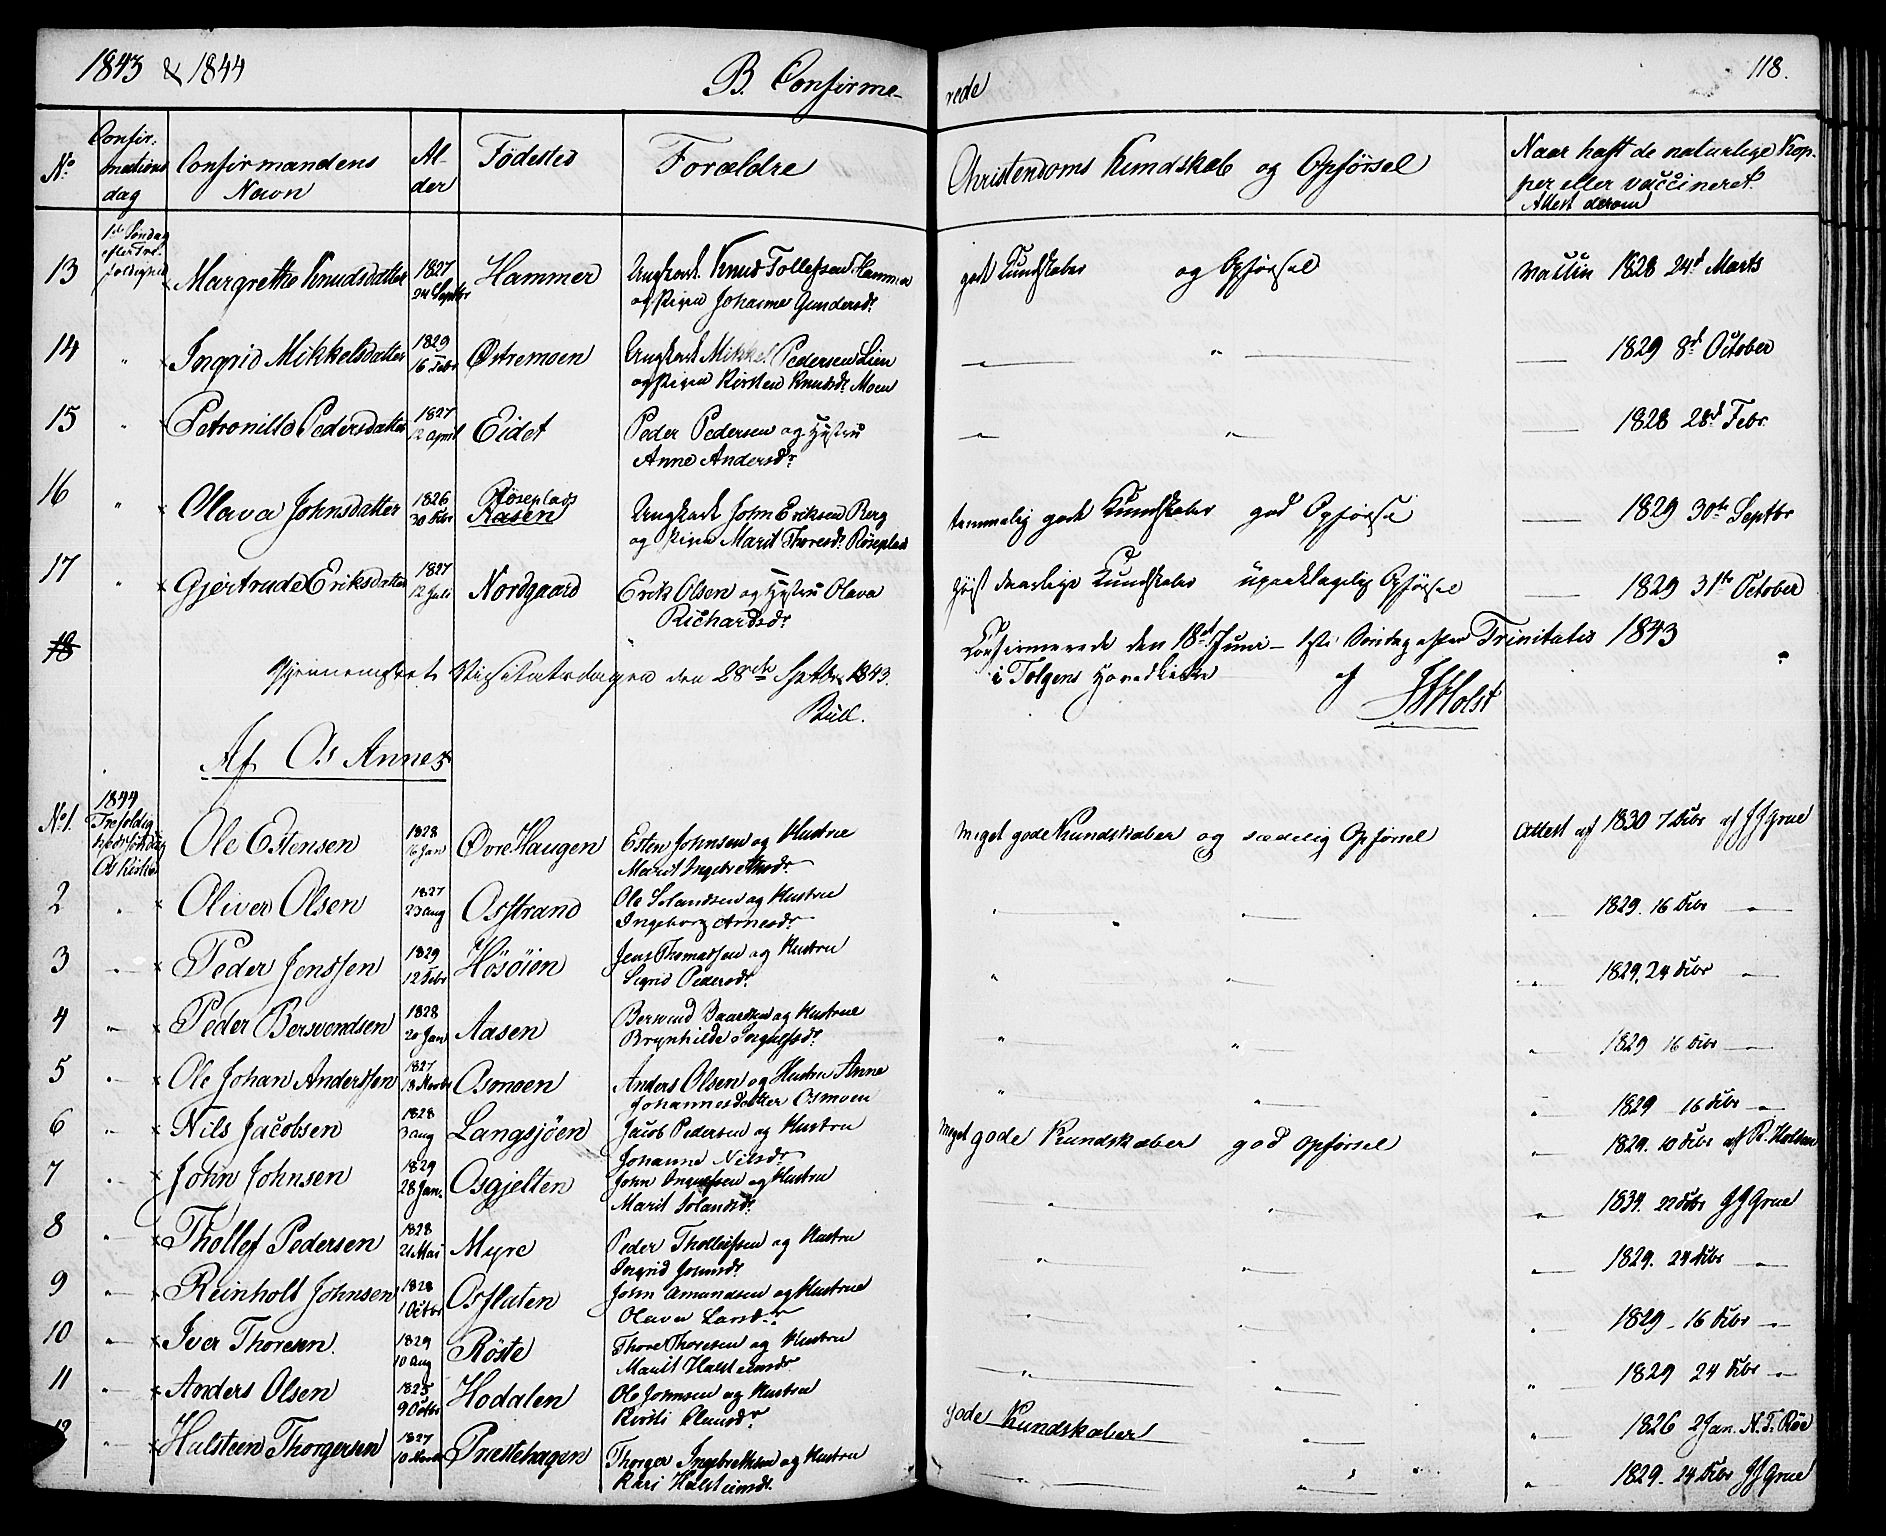 1843 & 1844
B. Confirme-
rede
118.
No
Confir-
mations
dag
Confirmandens
Navn
Al-
der
Födested
Forældre
Christendoms Kundskab og Opförsel
Naar haft de naturlige Kop-
per eller vaccineret.
Attest derom
13 1ste Söndag efter Tre- foldighed x Margrethe Knudsdatter 1827 24 Septbr Hammer Ungkarl Knud Tollefsen Hammer
og Pigen Johanne Gundersdr
gode Kundskaber og Opförsel
vaccin 1828 24d Marts
14 " x Ingrid Mikkelsdatter 1829 16 Febr Østremoen Ungkarl Mikkel Pedersen Lien
og Pigen Kirsten Knudsdr Moen
" 1829 8d October
15 " x Petronille Pedersdatter 1827 12 April Eidet Peder Pedersen og Hustru
Anne Andersdr
" 1828 28d Febr
16 " x Olava Johnsdatter 1826 30 Röseplads Aasen Ungkarl John Eriksen Berg
og Pigen Marit Thoresdr Röseplads
temmelig gode Kundskaber god Opförsel
1829 30te Septbr
17 " x Gjertrude Eriksdatter 1827 12 Juli Nordgaard Erik Olsen og Hustru Olava
Richardsdr
höist daarlige Kundskaber upaaklagelig Opförsel
1829 31te October
18
Confirmerede den 18de Juni - 1ste Söndag efter Trinitatis 1843
i Tolgens Hovedkirke af
Holst
Gjennemseet Visitatsdagen den 28de Septbr 1843.
Bull.
Af Os Annex
No 1. 1844 Trefoldig- heds Os Kirke Ole Estensen 1828 16 Jan Øvre Haugen Esten Johnsen og Hustrue
Marit Ingebretsdr
Meget gode Kundskaber og sædelig Opförsel
Attest af 1830 7 Dcbr af J J Grue
2 " x Oliver Olsen 1827 23 Aug Osstrand Ole Erlandsen og Hustrue
Ingeborg Arnesdr
" 1829. 16 Dcbr "
3 " x Peder Jenssen 1829 12 Febr Hösöien Jens Thomassen og Hustrue
Sigrid Pedersdr
" 1829. 24 Dcbr "
4 " x Peder Bersvendsen 1828 20 Jan Aasen Bersvend Baardsen og Hustrue
Brynhilde
" 1829 16 Dcbr "
5 " x Ole Johan Anderssen 1827 18 Novbr Osmoen Anders Olsen og Hustru Anne
Johannesdatter Osmoen
" 1829 - 16 Dcbr "
6 " x Nils Jacobsen 1828 3 Aug Langsjöen Jacob Pedersen og Hustrue
Johanne Nilsdr
Meget gode Kundskaber god Opförsel
" 1829. 10 Dcbr af
7 " x John Johnsen 1829 28 Jan. Osgjelten John og Hustrue
Marit Erlandsdr
" 1834. 22 Dcbr J J Grue
8 " x Thollef Pedersen 1828 Mai Myre Peder Tholleifsen og Hustrue
Ingrid Johnsdr
" 1829. 24 Dcbr "
9 " x Reinholt Johnsen 1828 1 Octbr Osflaten John Amundsen og Hustrue
Olava Larsdr
" 1829 - 16 Dcbr "
10 " x Iver Thoresen. 1829 10 Aug Röste Thore Thoresen og Hustrue
Marit Halsteinsdr
" 1829 24 Dcbr "
11 " x Anders Olsen 1825 9 Octbr Hodalen Ole Johnsen og Hustrue
Kirsti
gode Kundskaber
" 1826 2 Jan. N. T. Röe
12 " x Halsteen Thorgersen 1827 10 Præstehagen Thorger Ingebretsen og Hustrue
Kari Halsteinsdr
" 1829. 24 Dcbr J J Grue